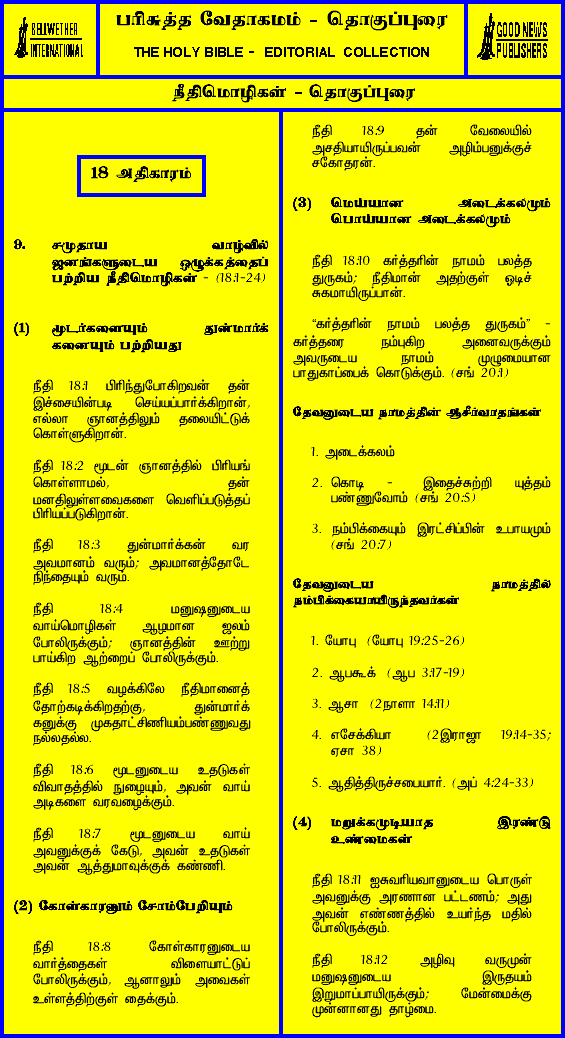 BELLWETHER
INTERNATIONAL
பரிசுத்த வேதாகமம் - தொகுப்புரை
THE HOLY BIBLE - EDITORIAL COLLECTION
GOOD NEWS
PUBLISHERS
நீதிமொழிகள் - தொகுப்புரை
18 அதிகாரம்
9. சமுதாய வாழ்வில்
ஜனங்களுடைய ஒழுக்கத்தைப்
பற்றிய நீதிமொழிகள் - (18:1-24)
(1) மூடர்களையும் துன்மார்க்
களையும் பற்றியது
நீதி 18:1 பிரிந்துபோகிறவன் தன்
இச்சையின்படி செய்யப்பார்க்கிறான்,
எல்லா ஞானத்திலும் தலையிட்டுக்
கொள்ளுகிறான்.
நீதி 18:2 மூடன் ஞானத்தில் பிரியங்
கொள்ளாமல், தன்
மனதிலுள்ளவைகளை வெளிப்படுத்தப்
பிரியப்படுகிறான்.
நீதி 18:3 துன்மார்க்கன் வர
அவமானம் வரும்; அவமானத்தோடே
நிந்தையும் வரும்.
நீதி 18:4 மனுஷனுடைய
வாய்மொழிகள் ஆழமான ஜலம்
போலிருக்கும்; ஞானத்தின் ஊற்று
பாய்கிற ஆற்றைப் போலிருக்கும்.
நீதி 18:5 வழக்கிலே நீதிமானைத்
தோற்கடிக்கிறதற்கு, துன்மார்க்
கனுக்கு முகதாட்சிணியம்பண்ணுவது
நல்லதல்ல.
நீதி 18:6 மூடனுடைய உதடுகள்
விவாதத்தில் நுழையும், அவன் வாய்
அடிகளை வரவழைக்கும்.
நீதி 18:7 மூடனுடைய வாய்
அவனுக்குக் கேடு, அவன் உதடுகள்
அவன் ஆத்துமாவுக்குக் கண்ணி.
(2) கோள்காரனும் சோம்பேறியும்
நீதி 18:8 கோள்காரனுடைய
வார்த்தைகள் விளையாட்டுப்
போலிருக்கும், ஆனாலும் அவைகள்
உள்ளத்திற்குள் தைக்கும்.
நீதி 18:9 தன் வேலையில்
அசதியாயிருப்பவன் அழிம்பனுக்குச்
சகோதரன்.
(3) மெய்யான அடைக்கலமும்
பொய்யான அடைக்கலமும்
நீதி 18:10 கர்த்தரின் நாமம் பலத்த
துருகம்; நீதிமான் அதற்குள் ஓடிச்
சுகமாயிருப்பான்.
“கர்த்தரின் நாமம் பலத்த துருகம்” -
கர்த்தரை நம்புகிற அனைவருக்கும்
அவருடைய நாமம் முழுமையான
பாதுகாப்பைக் கொடுக்கும். (சங் 20:1)
தேவனுடைய நாமத்தின் ஆசீர்வாதங்கள்
1. அடைக்கலம்
2. கொடி - இதைச்சுற்றி யுத்தம்
பண்ணுவோம் (சங் 20:5)
3. நம்பிக்கையும் இரட்சிப்பின் உபாயமும்
(சங் 20:7)
தேவனுடைய நாமத்தில்
நம்பிக்கையாயிருந்தவர்கள்
1. யோபு (யோபு 19:25-26)
2. ஆபகூக் (ஆப 3:17-19)
3. ஆசா (2நாளா 14:11)
4. எசேக்கியா (2இராஜா 19:14-35;
ஏசா 38)
5. ஆதித்திருச்சபையார். (அப் 4:24-33)
(4) மறுக்கமுடியாத இரண்டு
உண்மைகள்
நீதி 18:11 ஐசுவரியவானுடைய பொருள்
அவனுக்கு அரணான பட்டணம்; அது
அவன் எண்ணத்தில் உயர்ந்த மதில்
போலிருக்கும்.
நீதி 18:12 அழிவு வருமுன்
மனுஷனுடைய இருதயம்
இறுமாப்பாயிருக்கும்; மேன்மைக்கு
முன்னானது தாழ்மை.